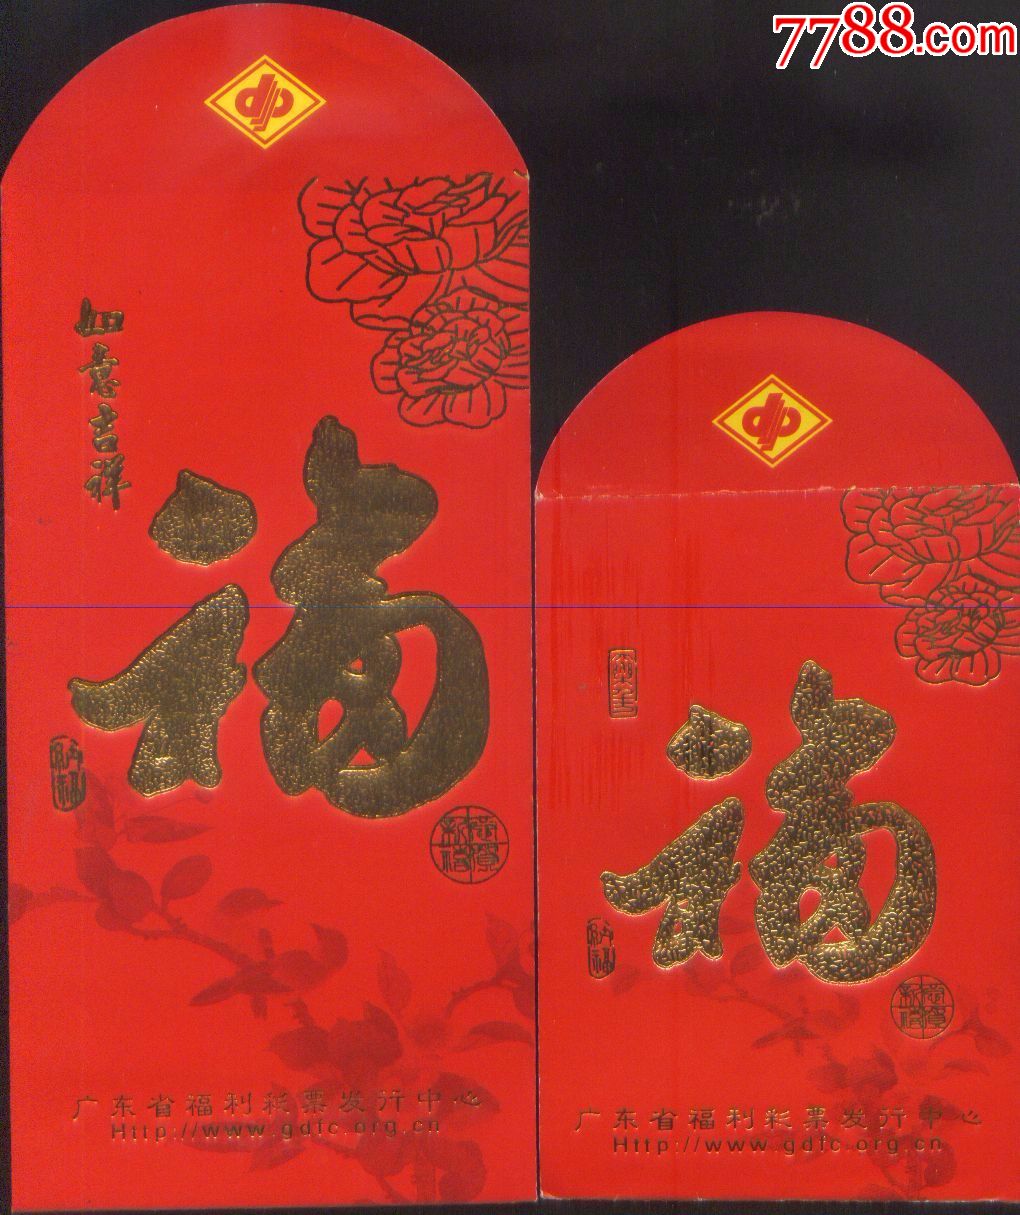 7788.com
如意吉祥
福
纳福
恭贺新禧
广东省福利彩票发行中心
Http://www.gdfc.org.cn
福
纳福
恭贺新禧
广东省福利彩票发行中心
Http://www.gdfc.org.cn